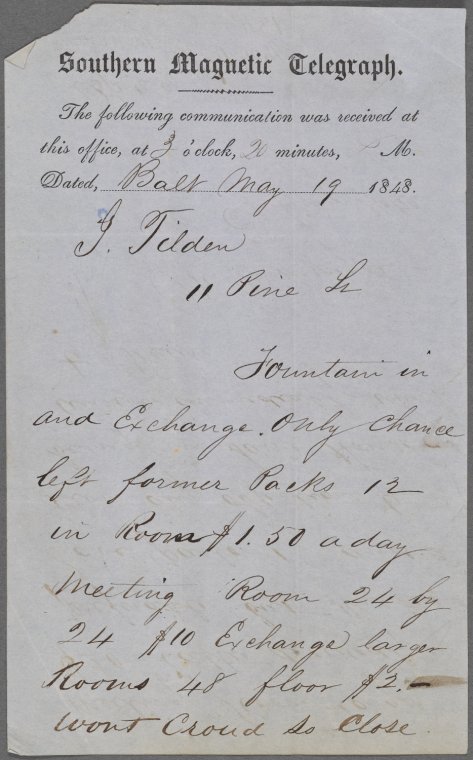 Southern Magnetic Telegraph.
The following communication was received at
this office, at 3 o'clock, 20 minutes, P M.
Dated, Balt May 19 1848.
J. Tilden
11 Pine St
Fountain in
and Exchange. Only Chance
left former Packs 12
in Room $1.50 a day
Meeting Room 24 by
24 $10 Exchange larger
Rooms 48 floor $2.–
wont Croud so Close.